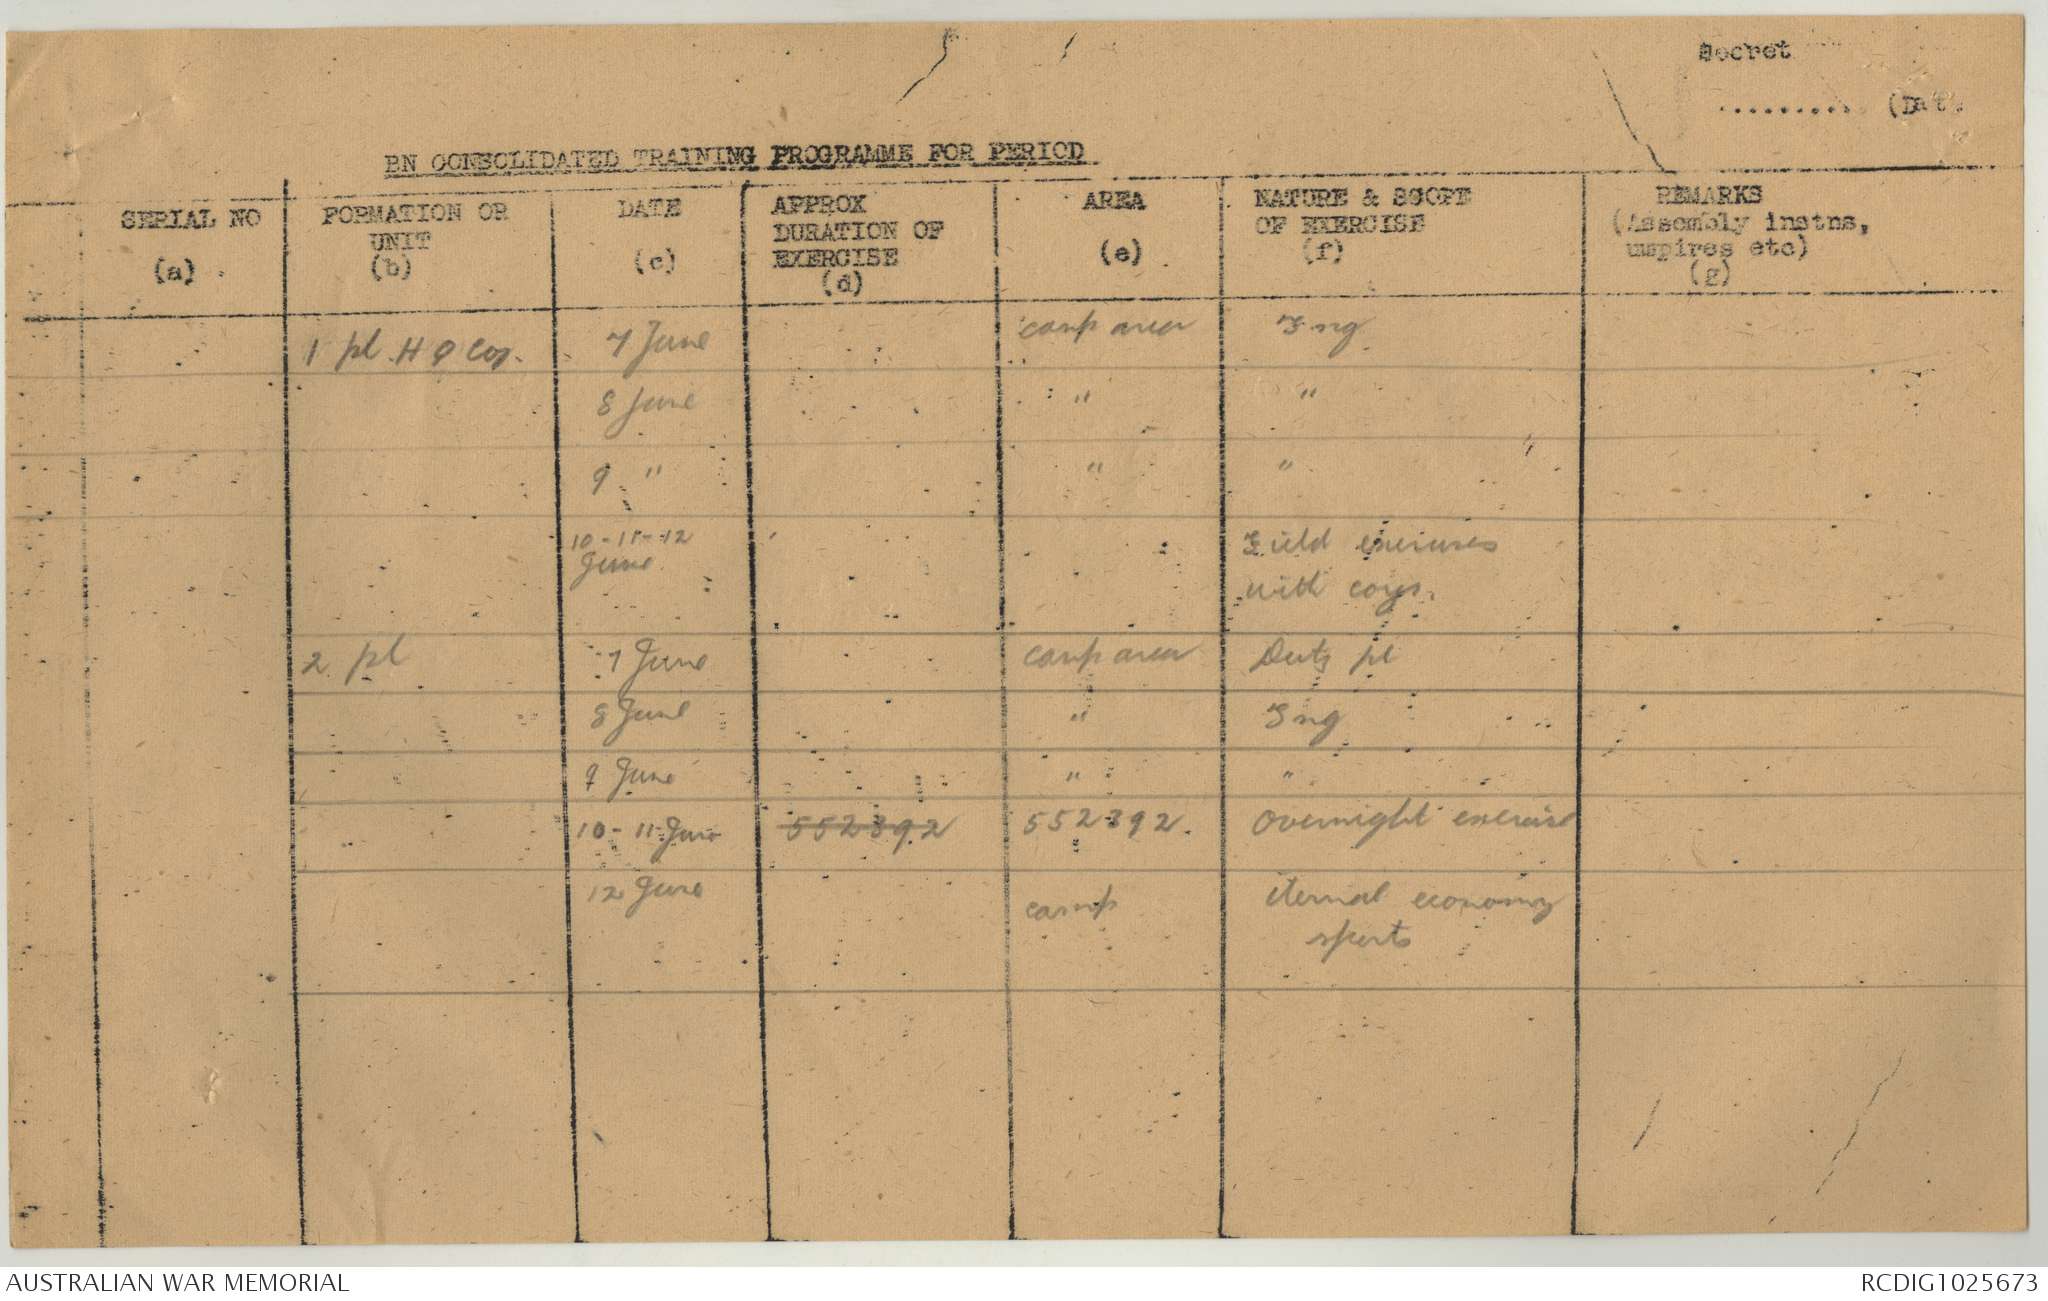 Secret
.......... (Dat.
BN CONSOLIDATED TRAINING PROGRAMME FOR PERIOD
SERIAL NO
(a)
FORMATION OR
UNIT
(b)
DATE
(c)
APPROX
DURATION OF
EXERCISE
(d)
AREA
(e)
NATURE & SCOPE
OF EXERCISE
(f)
REMARKS
(Assembly instns,
umpires etc)
(g)
1 pl HQ Coy. 7 June camp area Tng
8 June " "
9 " " "
10-11-12
June
Field exercises
with coys.
2 pl 7 June camp area Duty pl
8 June " Tng
9 June " "
10-11 June 552392 552392. Overnight exercise
12 June camp iternal economy
sports
AUSTRALIAN WAR MEMORIAL
RCDIG1025673